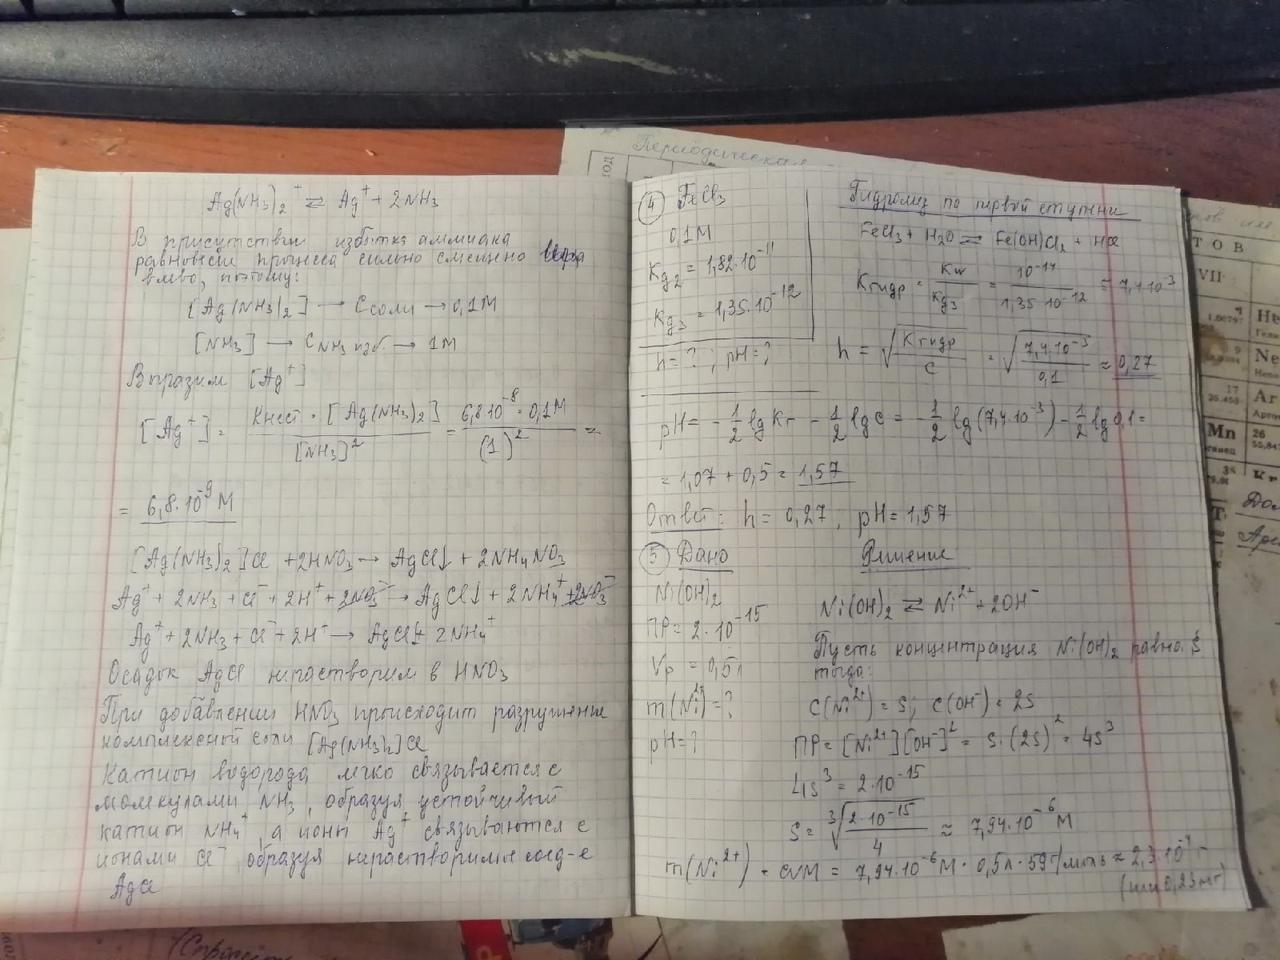 Ag(NH₃)₂⁺ ⇄ Ag⁺ + 2NH₃
В присутствии избытка аммиака
равновесие процесса сильно смещено
влево, поэтому:
[Ag(NH₃)₂] → Cсоли → 0,1М
[NH₃] → C NH₃ изб. → 1М
Выразим [Ag⁺]
[Ag⁺] = Kнест · [Ag(NH₃)₂] / [NH₃]² = 6,8·10⁻⁸ · 0,1М / (1)² =
= 6,8·10⁻⁹ М
[Ag(NH₃)₂]Cl + 2HNO₃ → AgCl↓ + 2NH₄NO₃
Ag⁺ + 2NH₃ + Cl⁻ + 2H⁺ + 2NO₃⁻ → AgCl↓ + 2NH₄⁺ + 2NO₃⁻
Ag⁺ + 2NH₃ + Cl⁻ + 2H⁺ → AgCl↓ + 2NH₄⁺
Осадок AgCl нерастворим в HNO₃
При добавлении HNO₃ происходит разрушение
комплексной соли [Ag(NH₃)₂]Cl
Катион водорода легко связывается с
молекулами NH₃, образуя устойчивый
катион NH₄⁺, а ионы Ag⁺ связываются с
ионами Cl⁻, образуя нерастворимое соед-е
AgCl
Периодическая
④ FeCl₃
0,1М
Kд₂ = 1,82·10⁻¹¹
Kд₃ = 1,35·10⁻¹²
h = ? ; pH = ?
Гидролиз по первой ступени
FeCl₃ + H₂O ⇄ Fe(OH)Cl₂ + HCl
Kгидр = Kw / Kд₃ = 10⁻¹⁴ / 1,35·10⁻¹² ≈ 7,4·10⁻³
h = √(Kгидр / C) = √(7,4·10⁻³ / 0,1) ≈ 0,27
pH = - 1/2 lg Kг - 1/2 lg C = - 1/2 lg (7,4·10⁻³) - 1/2 lg 0,1 =
= 1,07 + 0,5 = 1,57
Ответ: h = 0,27; pH = 1,57
⑤ Дано
Ni(OH)₂
ПР = 2·10⁻¹⁵
Vр = 0,5л
m(Ni²⁺) = ?
pH = ?
Решение
Ni(OH)₂ ⇄ Ni²⁺ + 2OH⁻
Пусть концентрация Ni(OH)₂ равна S
тогда:
C(Ni²⁺) = S; C(OH⁻) = 2S
ПР = [Ni²⁺][OH⁻]² = S·(2S)² = 4S³
4S³ = 2·10⁻¹⁵
S = ³√(2·10⁻¹⁵ / 4) ≈ 7,94·10⁻⁶ М
m(Ni²⁺) = CVM = 7,94·10⁻⁶М · 0,5л · 59г/моль ≈ 2,3·10⁻⁴ г
(или 0,23 мг)
ТОВ
VII
1.00797
He
Ne
17
35.453
Ar
Mn
26
55,847
Kr